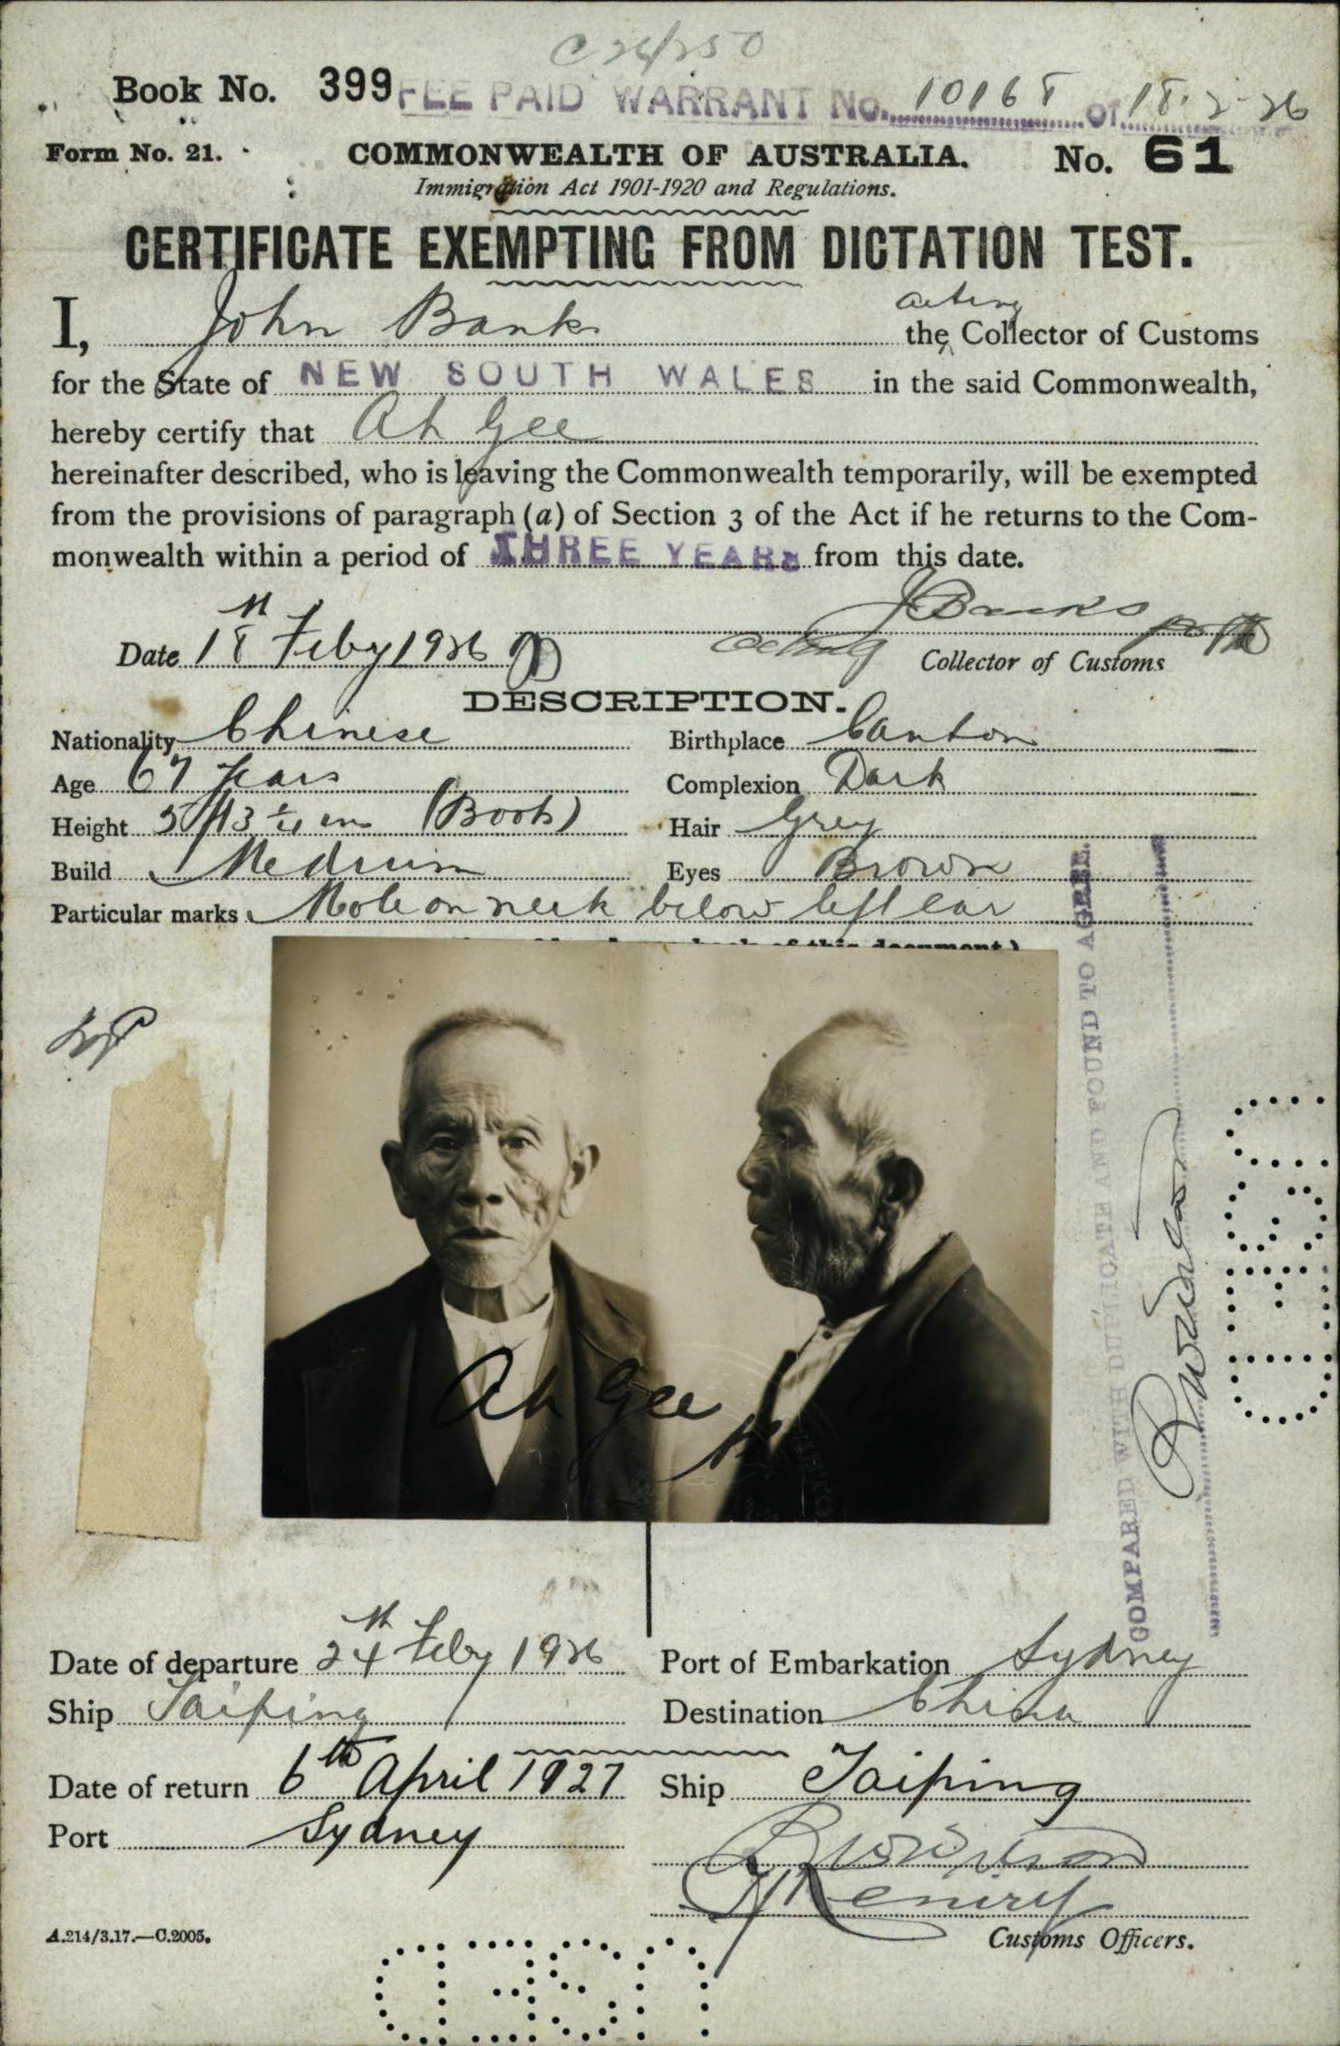 C 26/250
Book No. 399 FEE PAID WARRANT No. 10168 of 18.2.26
Form No. 21. COMMONWEALTH OF AUSTRALIA. No. 61
Immigration Act 1901-1920 and Regulations.
CERTIFICATE EXEMPTING FROM DICTATION TEST.
I, John Banks the acting Collector of Customs
for the State of NEW SOUTH WALES in the said Commonwealth,
hereby certify that Ah Gee
hereinafter described, who is leaving the Commonwealth temporarily, will be exempted
from the provisions of paragraph (a) of Section 3 of the Act if he returns to the Com-
monwealth within a period of THREE YEARS from this date.
J Banks
Date 18th Feby 1926 acting Collector of Customs
DESCRIPTION.
Nationality Chinese Birthplace Canton
Age 67 years Complexion Dark
Height 5 ft 3 1/4 ins (Boots) Hair Grey
Build Medium Eyes Brown
Particular marks Mole on neck below left ear
back of this document.)
Ah Gee
COMPARED WITH DUPLICATE AND FOUND TO AGREE.
USED
Date of departure 24th Feby 1926 Port of Embarkation Sydney
Ship Taiping Destination China
Date of return 6th April 1927 Ship Taiping
Port Sydney
Customs Officers.
A.214/3.17.—C.2005.
USED